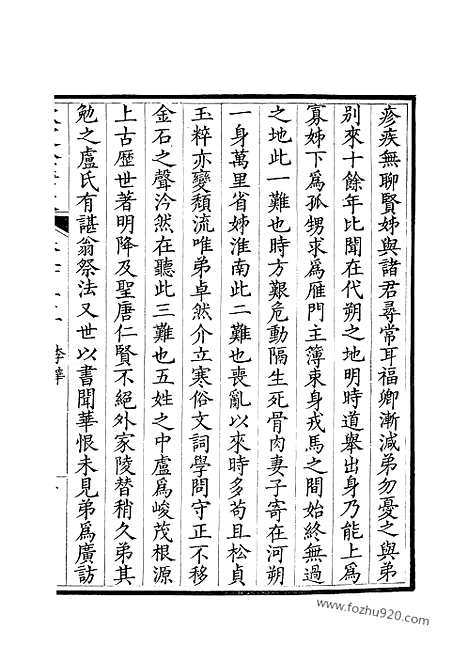 疹疾無聊賢姊與諸君尋常耳福卿漸減弟勿憂之與弟
別來十餘年比聞在代朔之地明時道舉出身乃能上為
寡姊下為孤甥求為雁門主簿束身戎馬之間始終無過
之地此一難也時方艱危動隔生死骨肉妻子寄在河朔
一身萬里省姊淮南此二難也喪亂以來時多苟且松貞
玉粹亦變頹流唯弟卓然介立寒俗文詞學問守正不移
金石之聲泠然在聽此三難也五姓之中盧為峻茂根源
上古歷世著明降及聖唐仁賢不絕外家陵替稍久弟其
勉之盧氏有諶翁祭法又世以書聞華恨未見弟為廣訪
李華
www.fozhu920.com